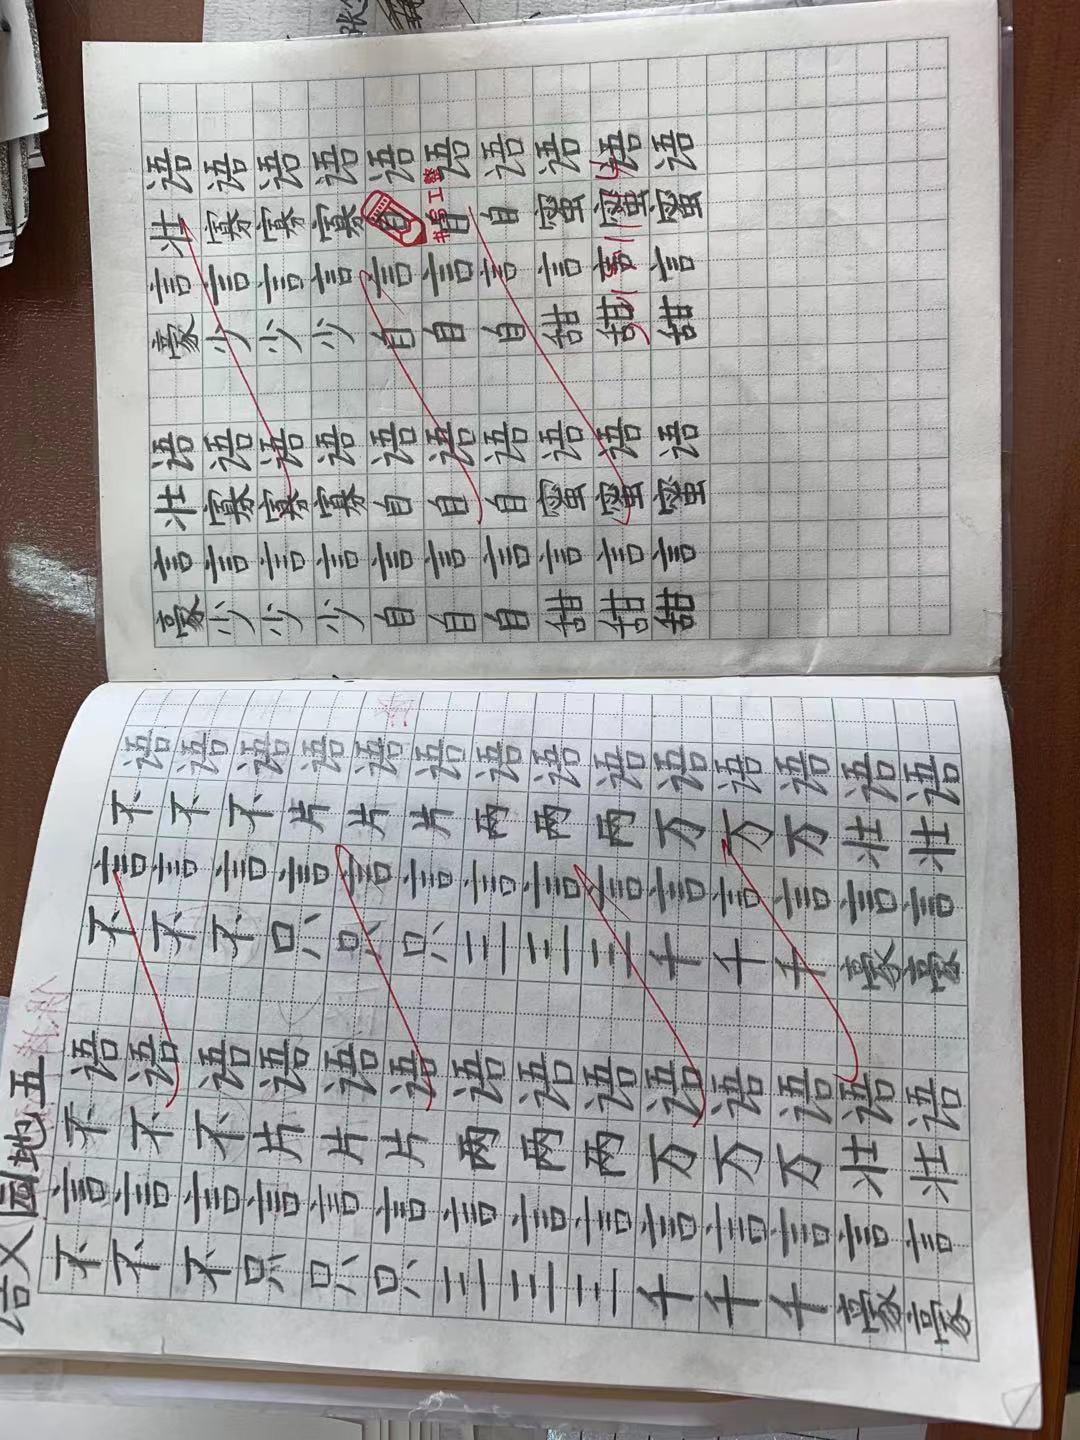 语文园地五
不言不语 不言不语
不言不语 不言不语
不言不语 不言不语
只言片语 只言片语
只言片语 只言片语
只言片语 只言片语
三言两语 三言两语
三言两语 三言两语
三言两语 三言两语
千言万语 千言万语
千言万语 千言万语
千言万语 千言万语
豪言壮语 豪言壮语
豪言壮语 豪言壮语
豪言壮语 豪言壮语
少言寡语 少言寡语
少言寡语 少言寡语
少言寡语 少言寡语
自言自语 自言自语
自言自语 自言自语
书写工整
自言自语 自言自语
甜言蜜语 甜言蜜语
甜言蜜语 甜言蜜语
甜言蜜语 甜言蜜语